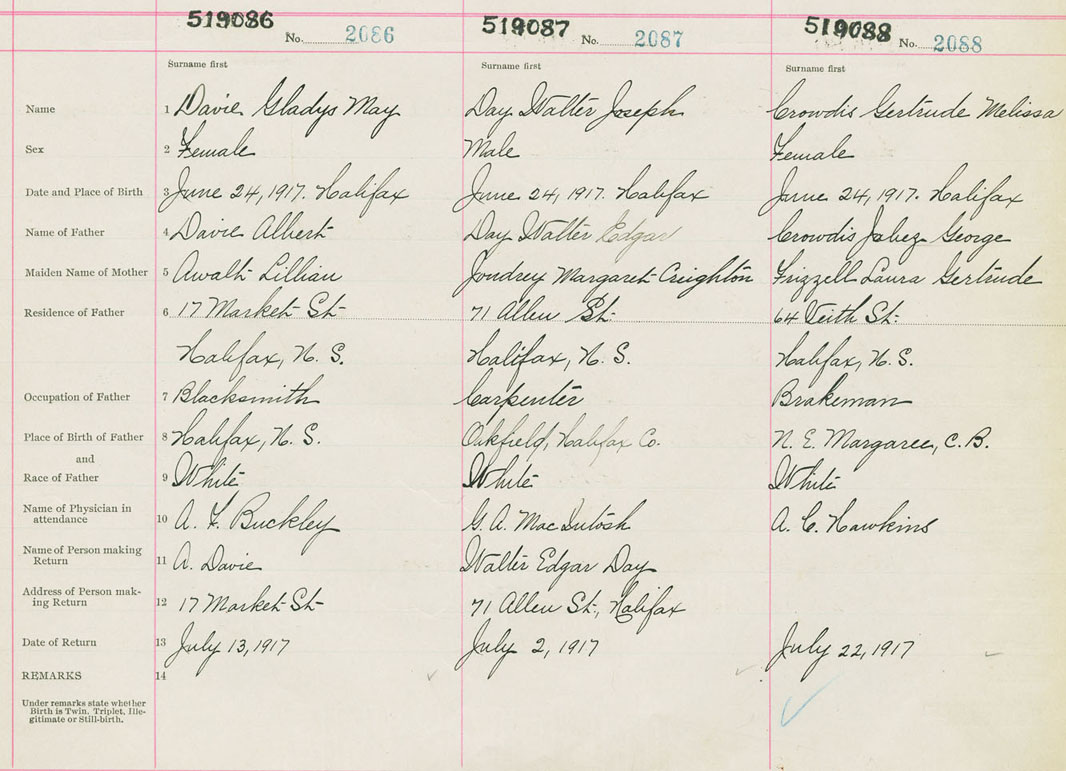 519086 519087 519088
No. 2086 No. 2087 No. 2088
Surname first Surname first Surname first
Name 1 Davie Gladys May Day Walter Joseph Crowdis Gertrude Melissa
Sex 2 Female Male Female
Date and Place of Birth 3 June 24, 1917. Halifax June 24, 1917. Halifax June 24, 1917. Halifax
Name of Father 4 Davie Albert Day Walter Edgar Crowdis Jabez George
Maiden Name of Mother 5 Awalt Lillian Joudrey Margaret Creighton Frizzell Laura Gertrude
Residence of Father 6 17 Market St. 71 Allen St. 64 St.
Halifax, N. S. Halifax, N. S. Halifax, N. S.
Occupation of Father 7 Blacksmith Carpenter Brakeman
Place of Birth of Father 8 Halifax, N. S. Oakfield, Halifax Co. N. E. Margaree, C. B.
and
Race of Father 9 White White White
Name of Physician in
attendance 10 A. F. Buckley G. A. MacIntosh A. C. Hawkins
Name of Person making
Return 11 A. Davie Walter Edgar Day
Address of Person mak-
ing Return 12 17 Market St 71 Allen St., Halifax
Date of Return 13 July 13, 1917 July 2, 1917 July 22, 1917
REMARKS 14
Under remarks state whether
Birth is Twin, Triplet, Ille-
gitimate or Still-birth.